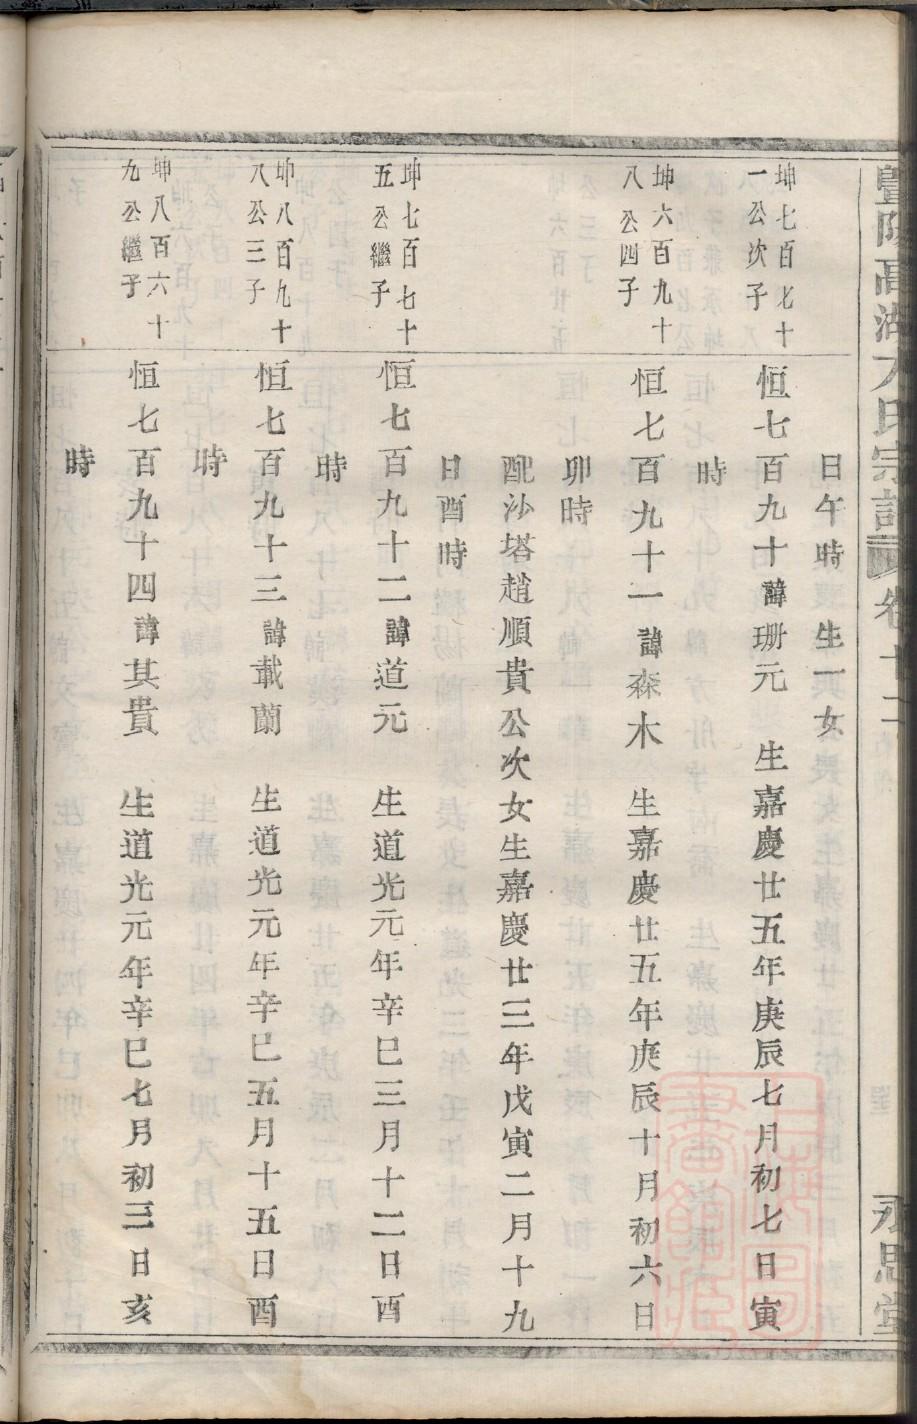 暨陽高湖方氏宗譜
永思堂
日午時 生一女
坤七百七十
一公次子
恒七百九十諱珊元 生嘉慶廿五年庚辰七月初七日寅
時
坤六百九十
八公四子
恒七百九十一諱森木 生嘉慶廿五年庚辰十月初六日
卯時
配沙塔趙順貴公次女生嘉慶廿三年戊寅二月十九
日酉時
坤七百七十
五公繼子
恒七百九十二諱道元 生道光元年辛巳三月十二日酉
時
坤八百九十
八公三子
恒七百九十三諱載蘭 生道光元年辛巳五月十五日酉
時
坤八百六十
九公繼子
恒七百九十四諱其貴 生道光元年辛巳七月初三日亥
時
上海圖書館藏